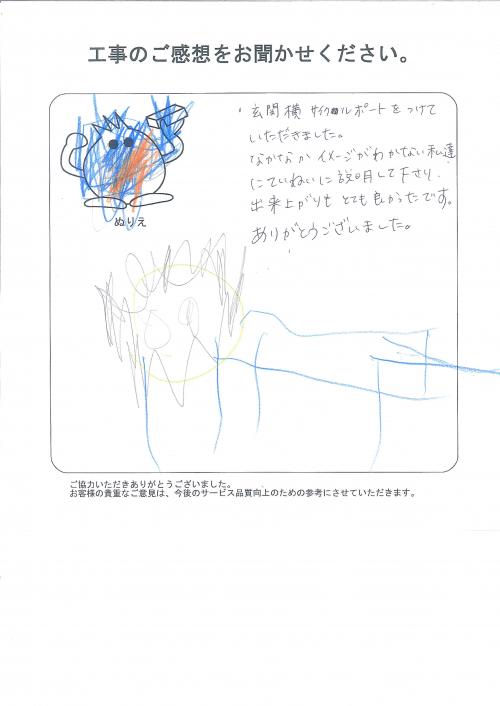 工事のご感想をお聞かせください。
・玄関横サイクルポートをつけて
いただきました。
なかなかイメージがわかない私達
にていねいに説明して下さり、
出来上がりもとても良かったです。
ありがとうございました。
ぬりえ
ご協力いただきありがとうございました。
お客様の貴重なご意見は、今後のサービス品質向上のための参考にさせていただきます。